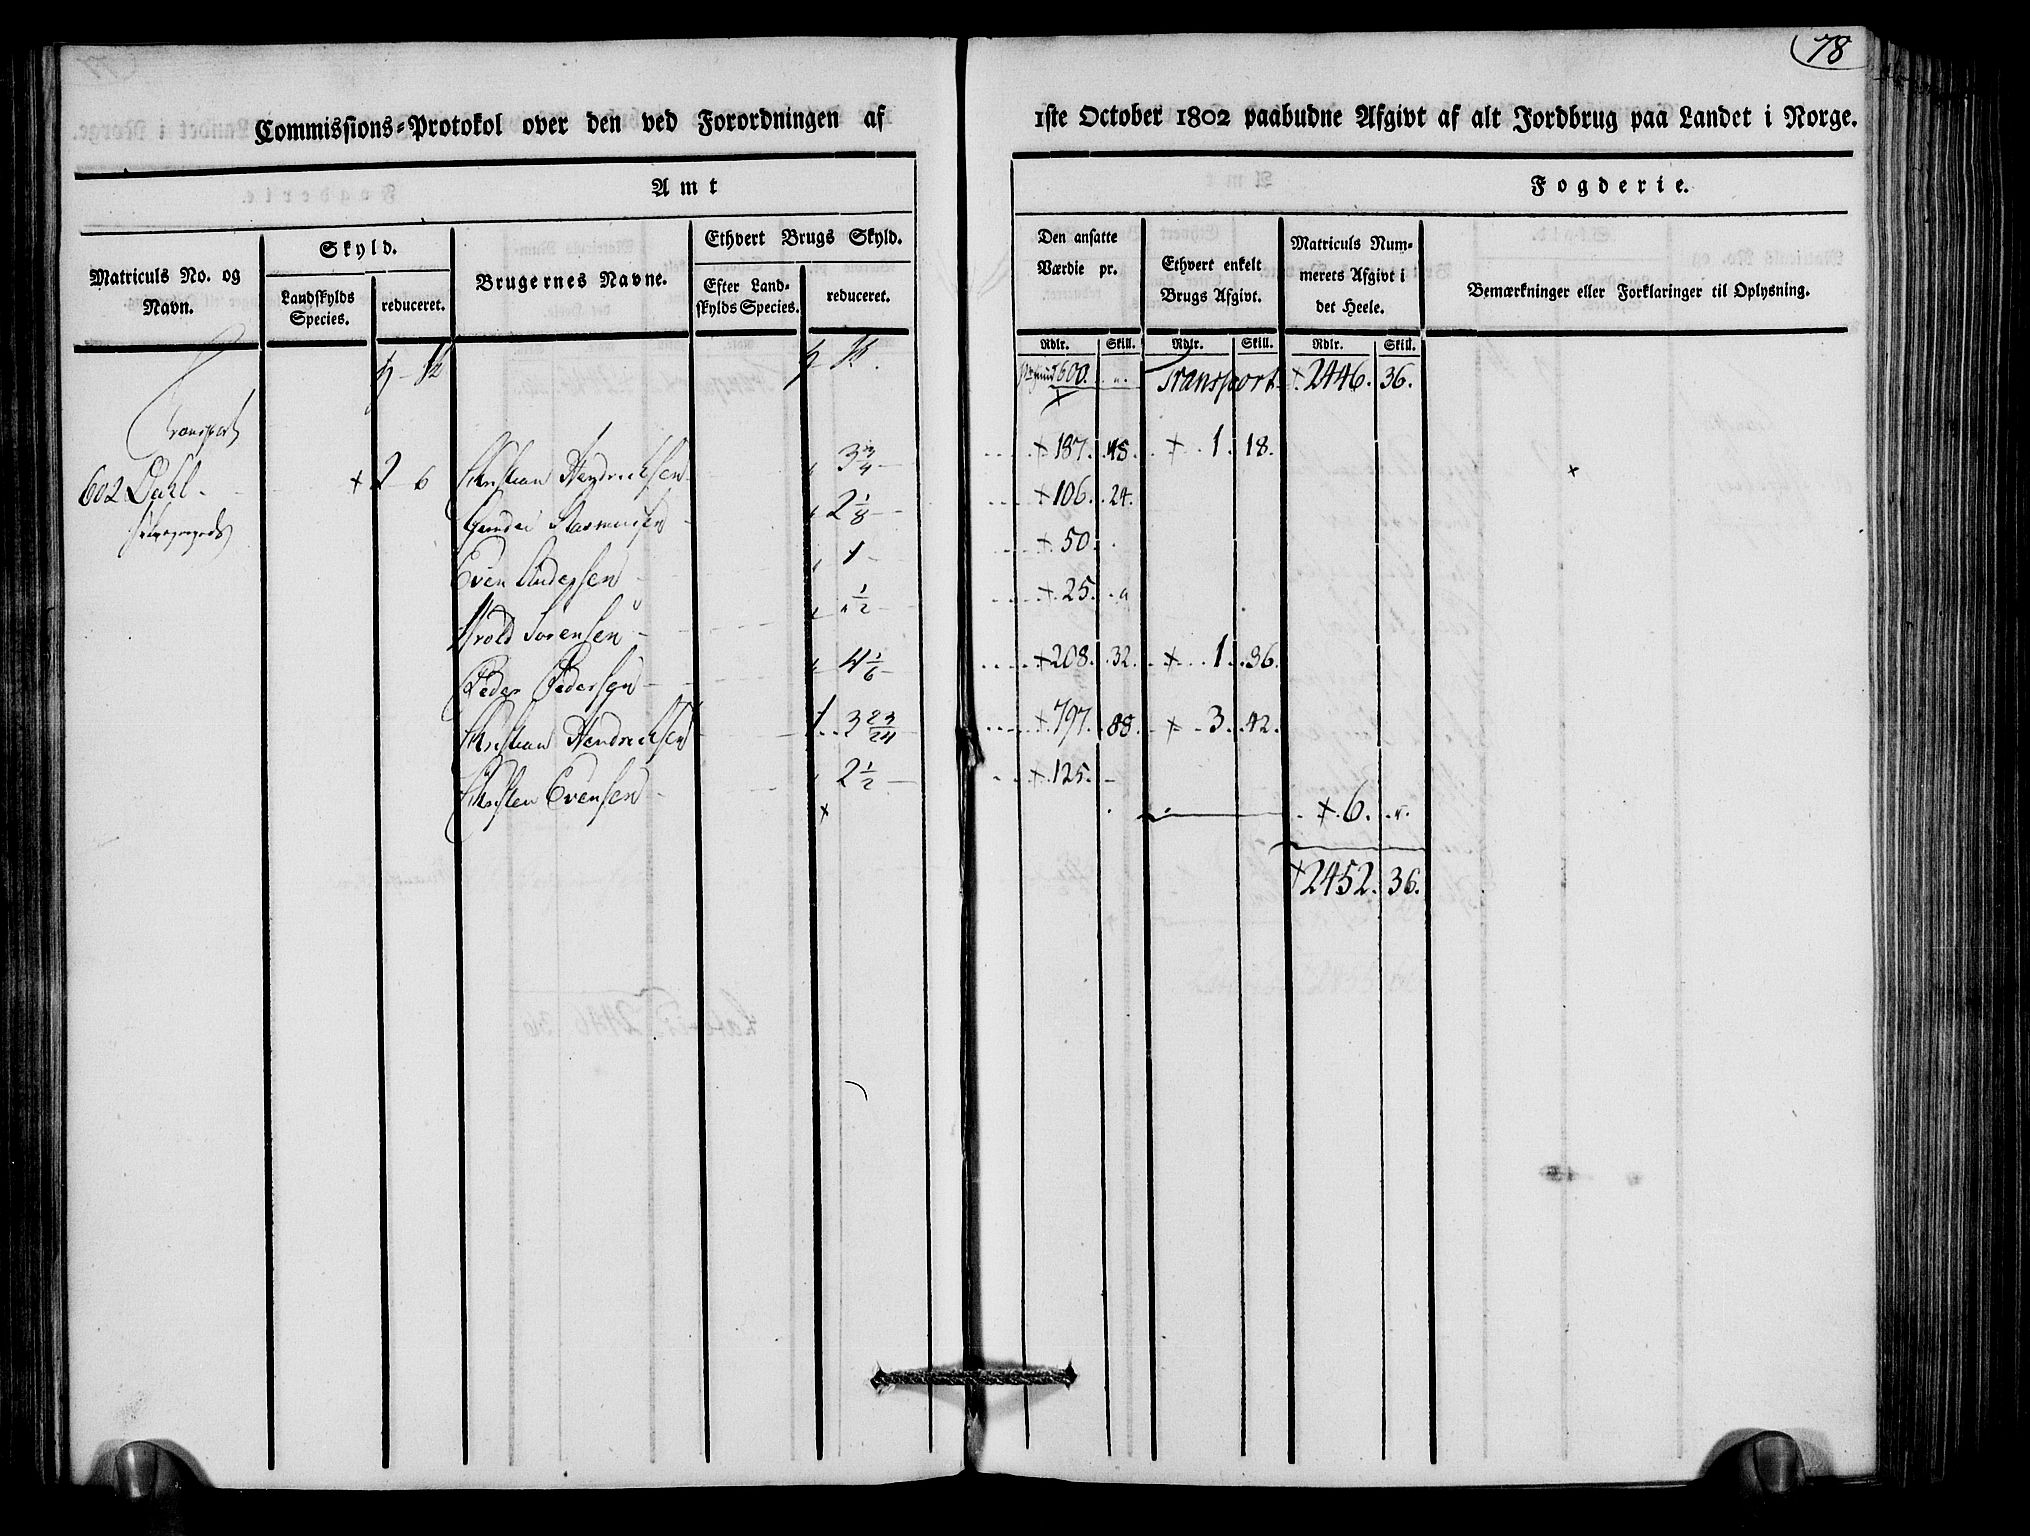 78
Commissions-Protokol over den ved Forordningen af 1ste October 1802 paabudne Afgivt af alt Jordbrug paa Landet i Norge.
Amt Fogderie.
Matriculs No. og Navn.
Skyld.
Landskylds Species.
reduceret.
Brugernes Navne.
Ethvert Brugs Skyld.
Efter Landskylds Species.
reduceret.
Den ansatte Værdie pr.
Ethvert enkelt Brugs Afgivt.
Matriculs Nummerets Afgivt i det Heele.
Bemærkninger eller Forklaringer til Oplysning.
Rdlr. Skill. Rdlr. Skill. Rdlr. Skill.
600. Transport + 2446. 36.
Transport
602 Dahl + 2 6 Christian Hendrichsen 3 3/4 + 187. 48. + 1. 18.
Rasmusen 2 1/8 + 106. 24.
Even Andersen 1 + 50.
Sørensen 1/2 + 25.
Peder Pedersen 4 1/6 + 208. 32. + 1. 36.
Christian Hendrichsen 1 3 23/24 + 797. 88. + 3. 42.
Christen Evensen 2 1/2 + 125.
+ 6.
+ 2452. 36.